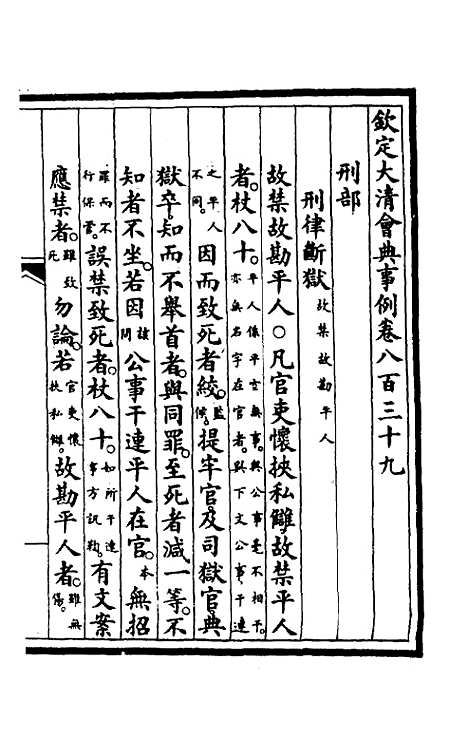 欽定大清會典事例卷八百三十九
刑部
刑律斷獄故禁故勘平人
故禁故勘平人○凡官吏懷挾私讎故禁平人
者。杖八十。平人係平空無事。與公事毫不相干。亦無名字在官者。與下文公事干連
之平人不同。因而致死者絞。監候。提牢官。及司獄官。典
獄卒。知而不舉首者。與同罪。至死者減一等。不
知者不坐。若因該問公事干連平人在官。本無招
罪而不行保管。誤禁致死者。杖八十。如所干連事方訊鞫。有文案
應禁者。雖致死勿論。若官吏懷挾私讎。故勘平人者。雖無傷。